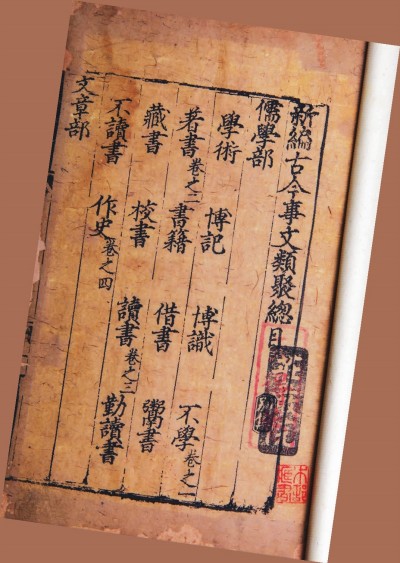 新編古今事文類聚總目
儒學部
學術 博記 博識 不學卷之一
著書卷之二 書籍 借書 鬻書
藏書 校書 讀書卷之三 勤讀書
不讀書 作史卷之四
文章部